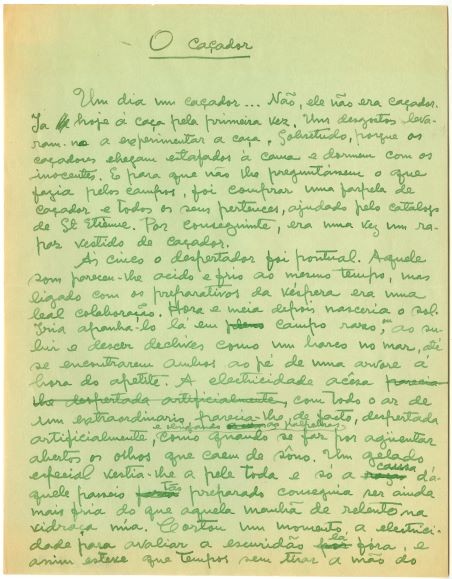 O caçador
Um dia um caçador... Não, ele não era caçador.
Ia hoje á caça pela primeira vez. Uns desgostos leva-
ram-no a experimentar a caça. Sobretudo, porque os
caçadores chegam estafados á cama e dormem com os
inocentes. E para que não lhe preguntássem o que
fazia pelos campos, foi comprar uma farpela de
caçador e todos os seus pertences, ajudado pelo catálogo
de St Etienne. Por conseguinte, era uma vez um ra-
paz vestido de caçador.
Ás cinco o despertador foi pontual. Aquele
som pareceu-lhe acido e frio ao mesmo tempo, mas
ligado com os preparativos da véspera era uma
leal colaboração. Hora e meia depois nasceria o sol.
Iria apanhá-lo lá em campo raso, ao su-
bir e descer declives como um barco no mar, até
se encontrarem ambos ao pé de uma arvore á
hora do apetite. A electricidade acesa parecia-
lhe despertada artificialmente, com todo o ar de
um extraordinario, parecia-lhe, de facto, despertada
e obrigando as palpebras
artificialmente, como quando se faz por agüentar
abertos os olhos que caem de sôno. Um gelado
especial vestia-lhe a pele toda e só a causa d'a-
quele passeio tão preparado conseguia ser ainda
mais fria do que aquela manhã de relento na
vidraça nua. Cortou um momento a electrici-
dade para avaliar a escuridão lá fóra, e
assim esteve que tempos sem tirar a mão do